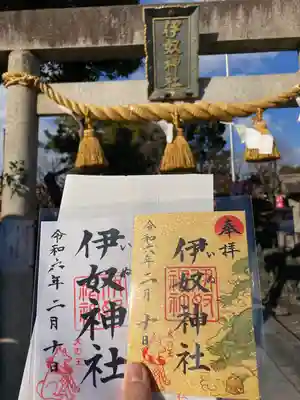 伊奴神社
令和六年二月十日
伊奴神社
いぬ
奉拝
令和六年二月十日
伊奴神社
いぬ